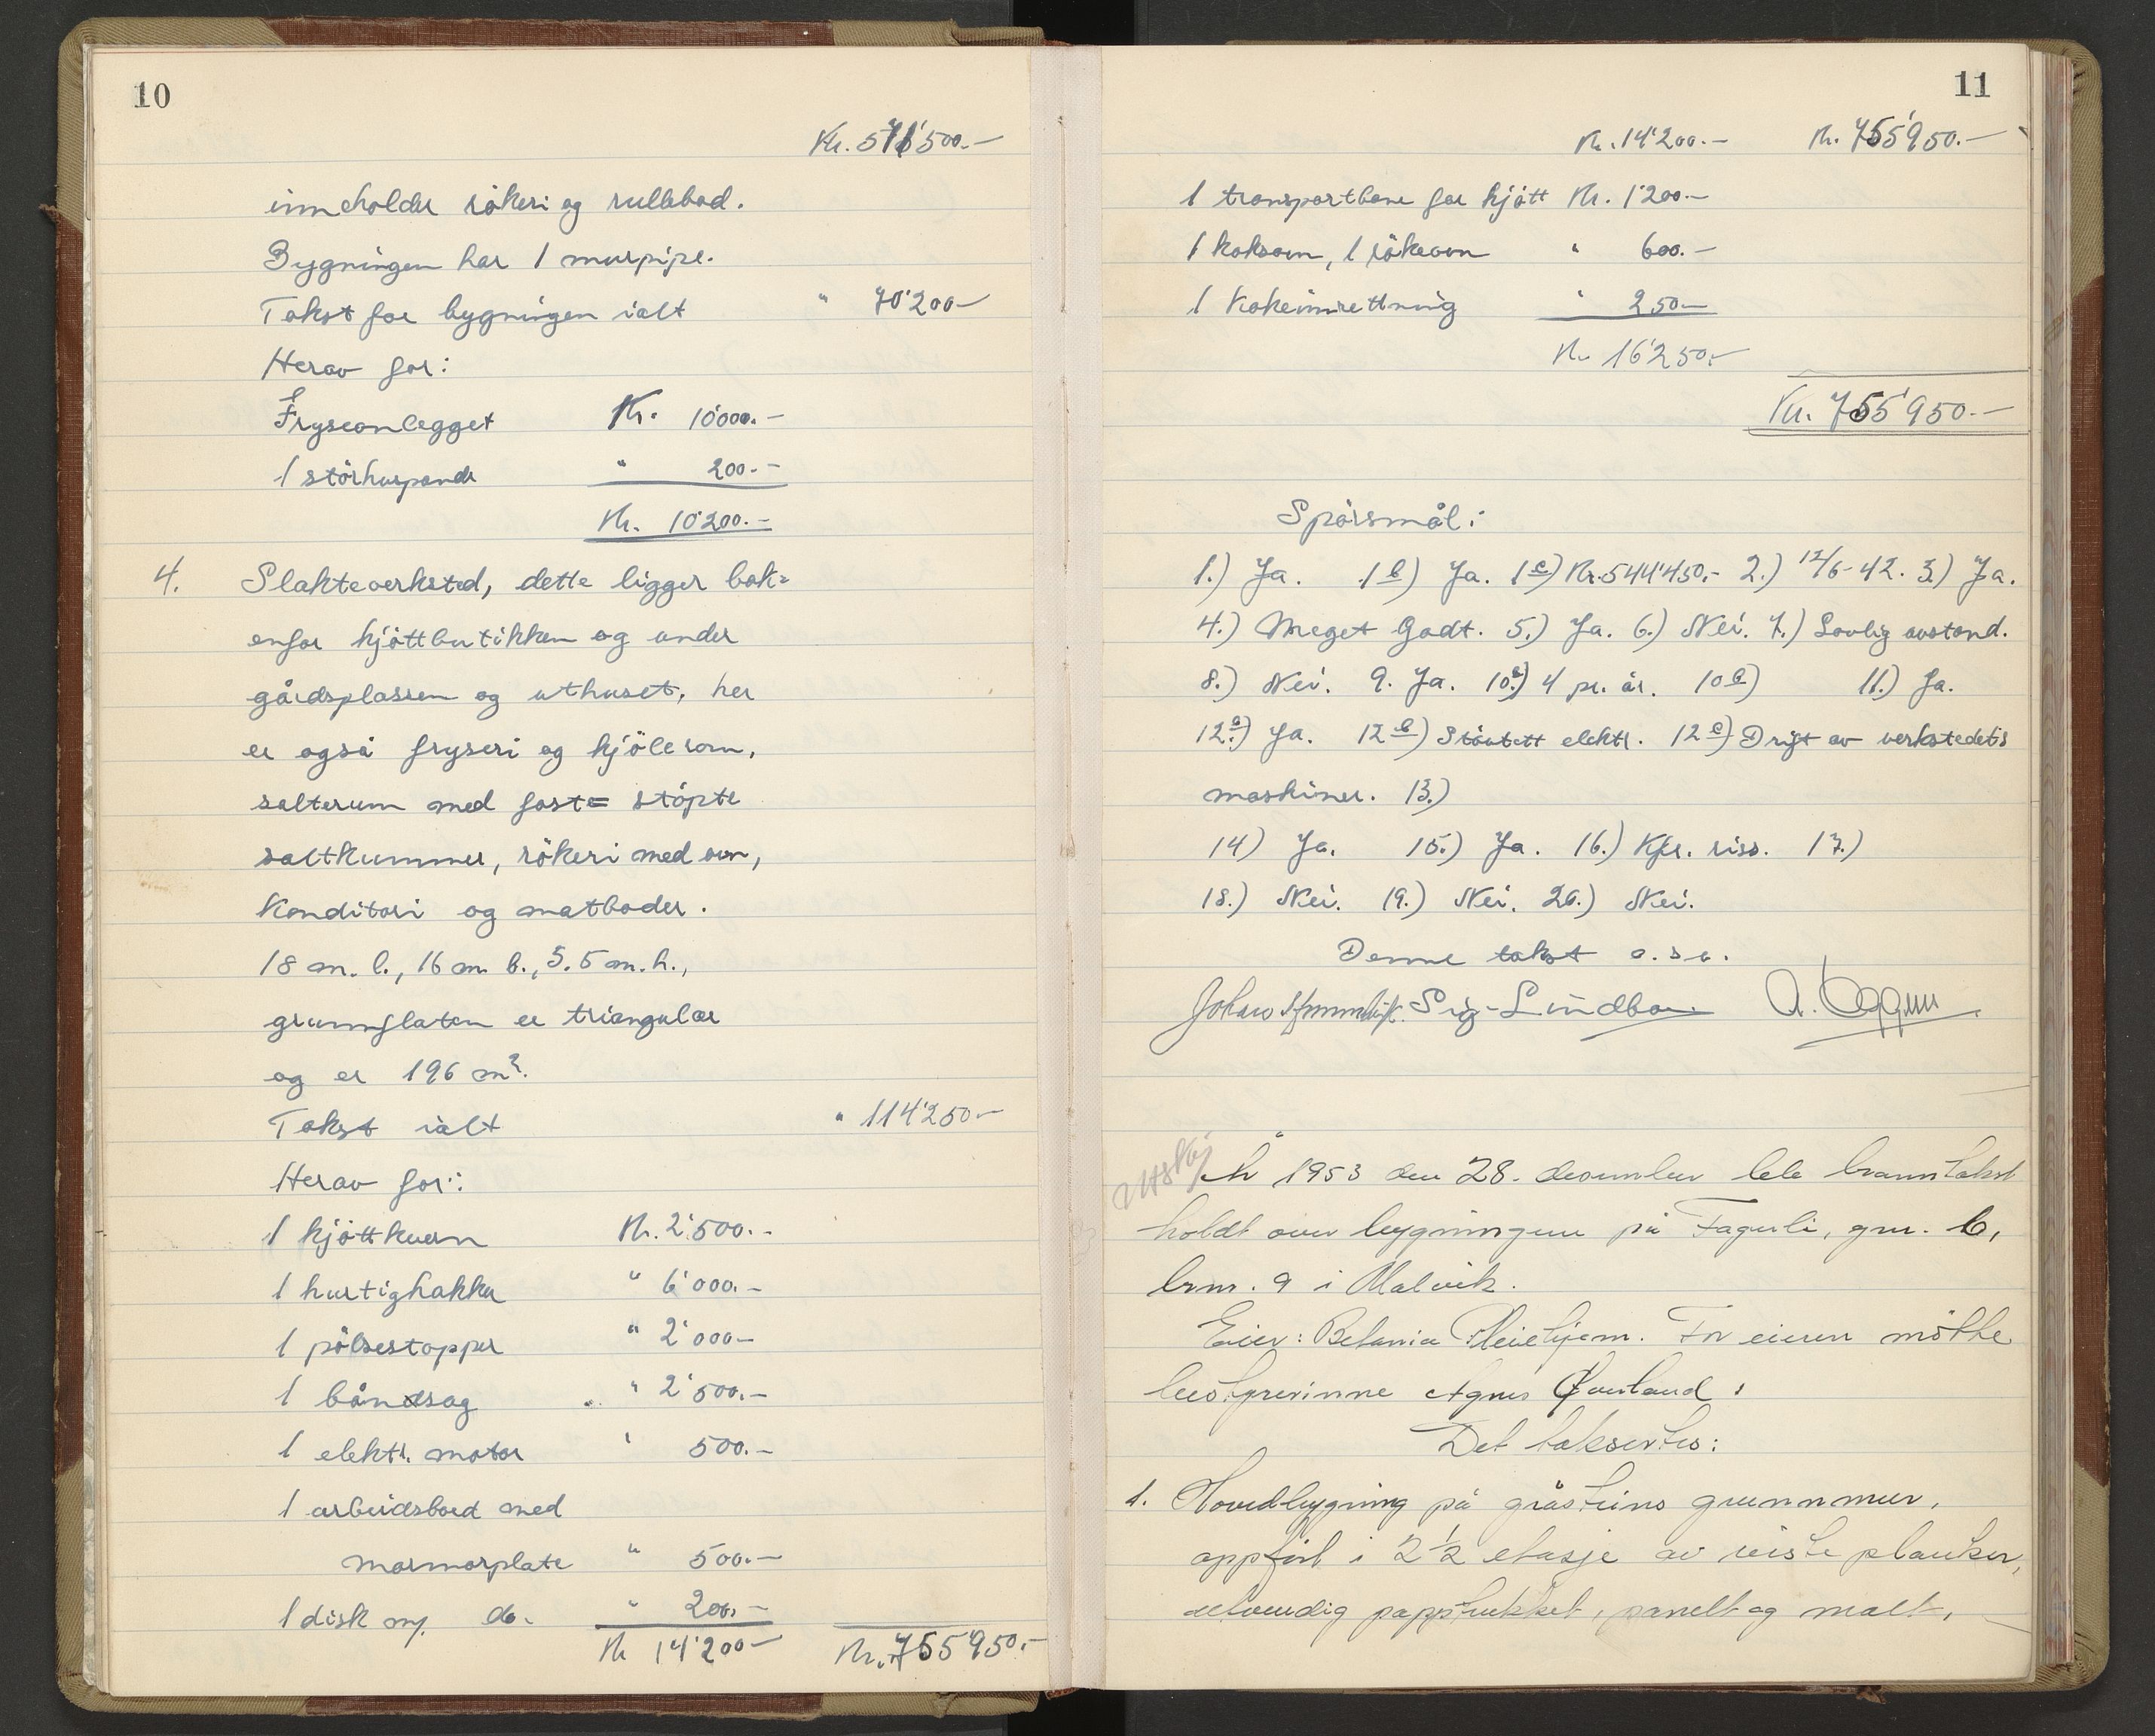 10
Kr. 571'500.-
inneholder rökeri og rullebod.
Bygningen har 1 murpipe.
Takst for bygningen ialt " 70'200-
Herav for:
Fryseanlegget Kr. 10'000.-
1 störhuspande " 200.-
Kr. 10'200.-
4. Slakteverksted, dette ligger bak=
enfor kjöttbutikken og under
gårdsplassen og uthuset, her
er også fryseri og kjölerom,
salterum med faste stöpte
saltkummer, rökeri med ovn,
Konditori og matboder.
18 m. l., 16 m. b., 3.5 m. h.,
grunnflaten er triangulær
og er 196 m².
Takst ialt " 114'250-
Herav for:
1 kjöttkvern Kr. 2'500.-
1 hurtighakker " 6'000.-
1 pölsestopper " 2'000-
1 båndsag " 2'500.-
1 elektr. motor " 500.-
1 arbeidsbord med
marmorplate " 500.-
1 disk m/. do. " 200.-
Kr 14'200- Kr. 755'950.-
11
Kr. 14'200.- Kr. 755'950.-
1 transportbane for kjött Kr. 1'200.-
1 koksovn, 1 rökeovn " 600.-
1 Kokeinnrettning " 250-
Kr. 16'250.-
Kr. 755'950.-
Spörsmål:
1.) Ja. 1 b) Ja. 1 c) Kr. 544'450.- 2.) 12/6-42. 3.) Ja.
4.) Meget Godt. 5.) Ja. 6.) Nei. 7.) Lovlig avstand.
8.) Nei. 9. Ja. 10.) 4 pr. år. 10 a) 11.) Ja.
12 a.) Ja. 12 b) Stövtett elektr. 12 c) Drift av verkstedets
maskiner. 13.)
14) Ja. 15.) Ja. 16.) Kfr. riss. 17.)
18.) Nei. 19.) Nei. 20.) Nei.
Denne takst o.s.v.
Johan Sig. Lindbo A.
Utskr.
År 1953 den 28. desember ble branntakst
holdt over bygningene på Fagerli, gnr. 6,
brnr. 9 i Malvik.
Eier: Betania Pleiehjem. For eieren mötte
bestyrerinne Agnes Överland.
Det taksertes:
1. Hovedbygning på gråsteins grunnmur,
oppfört i 2 1/2 etasje av reiste planker,
utvendig papptrukket, panelt og malt,